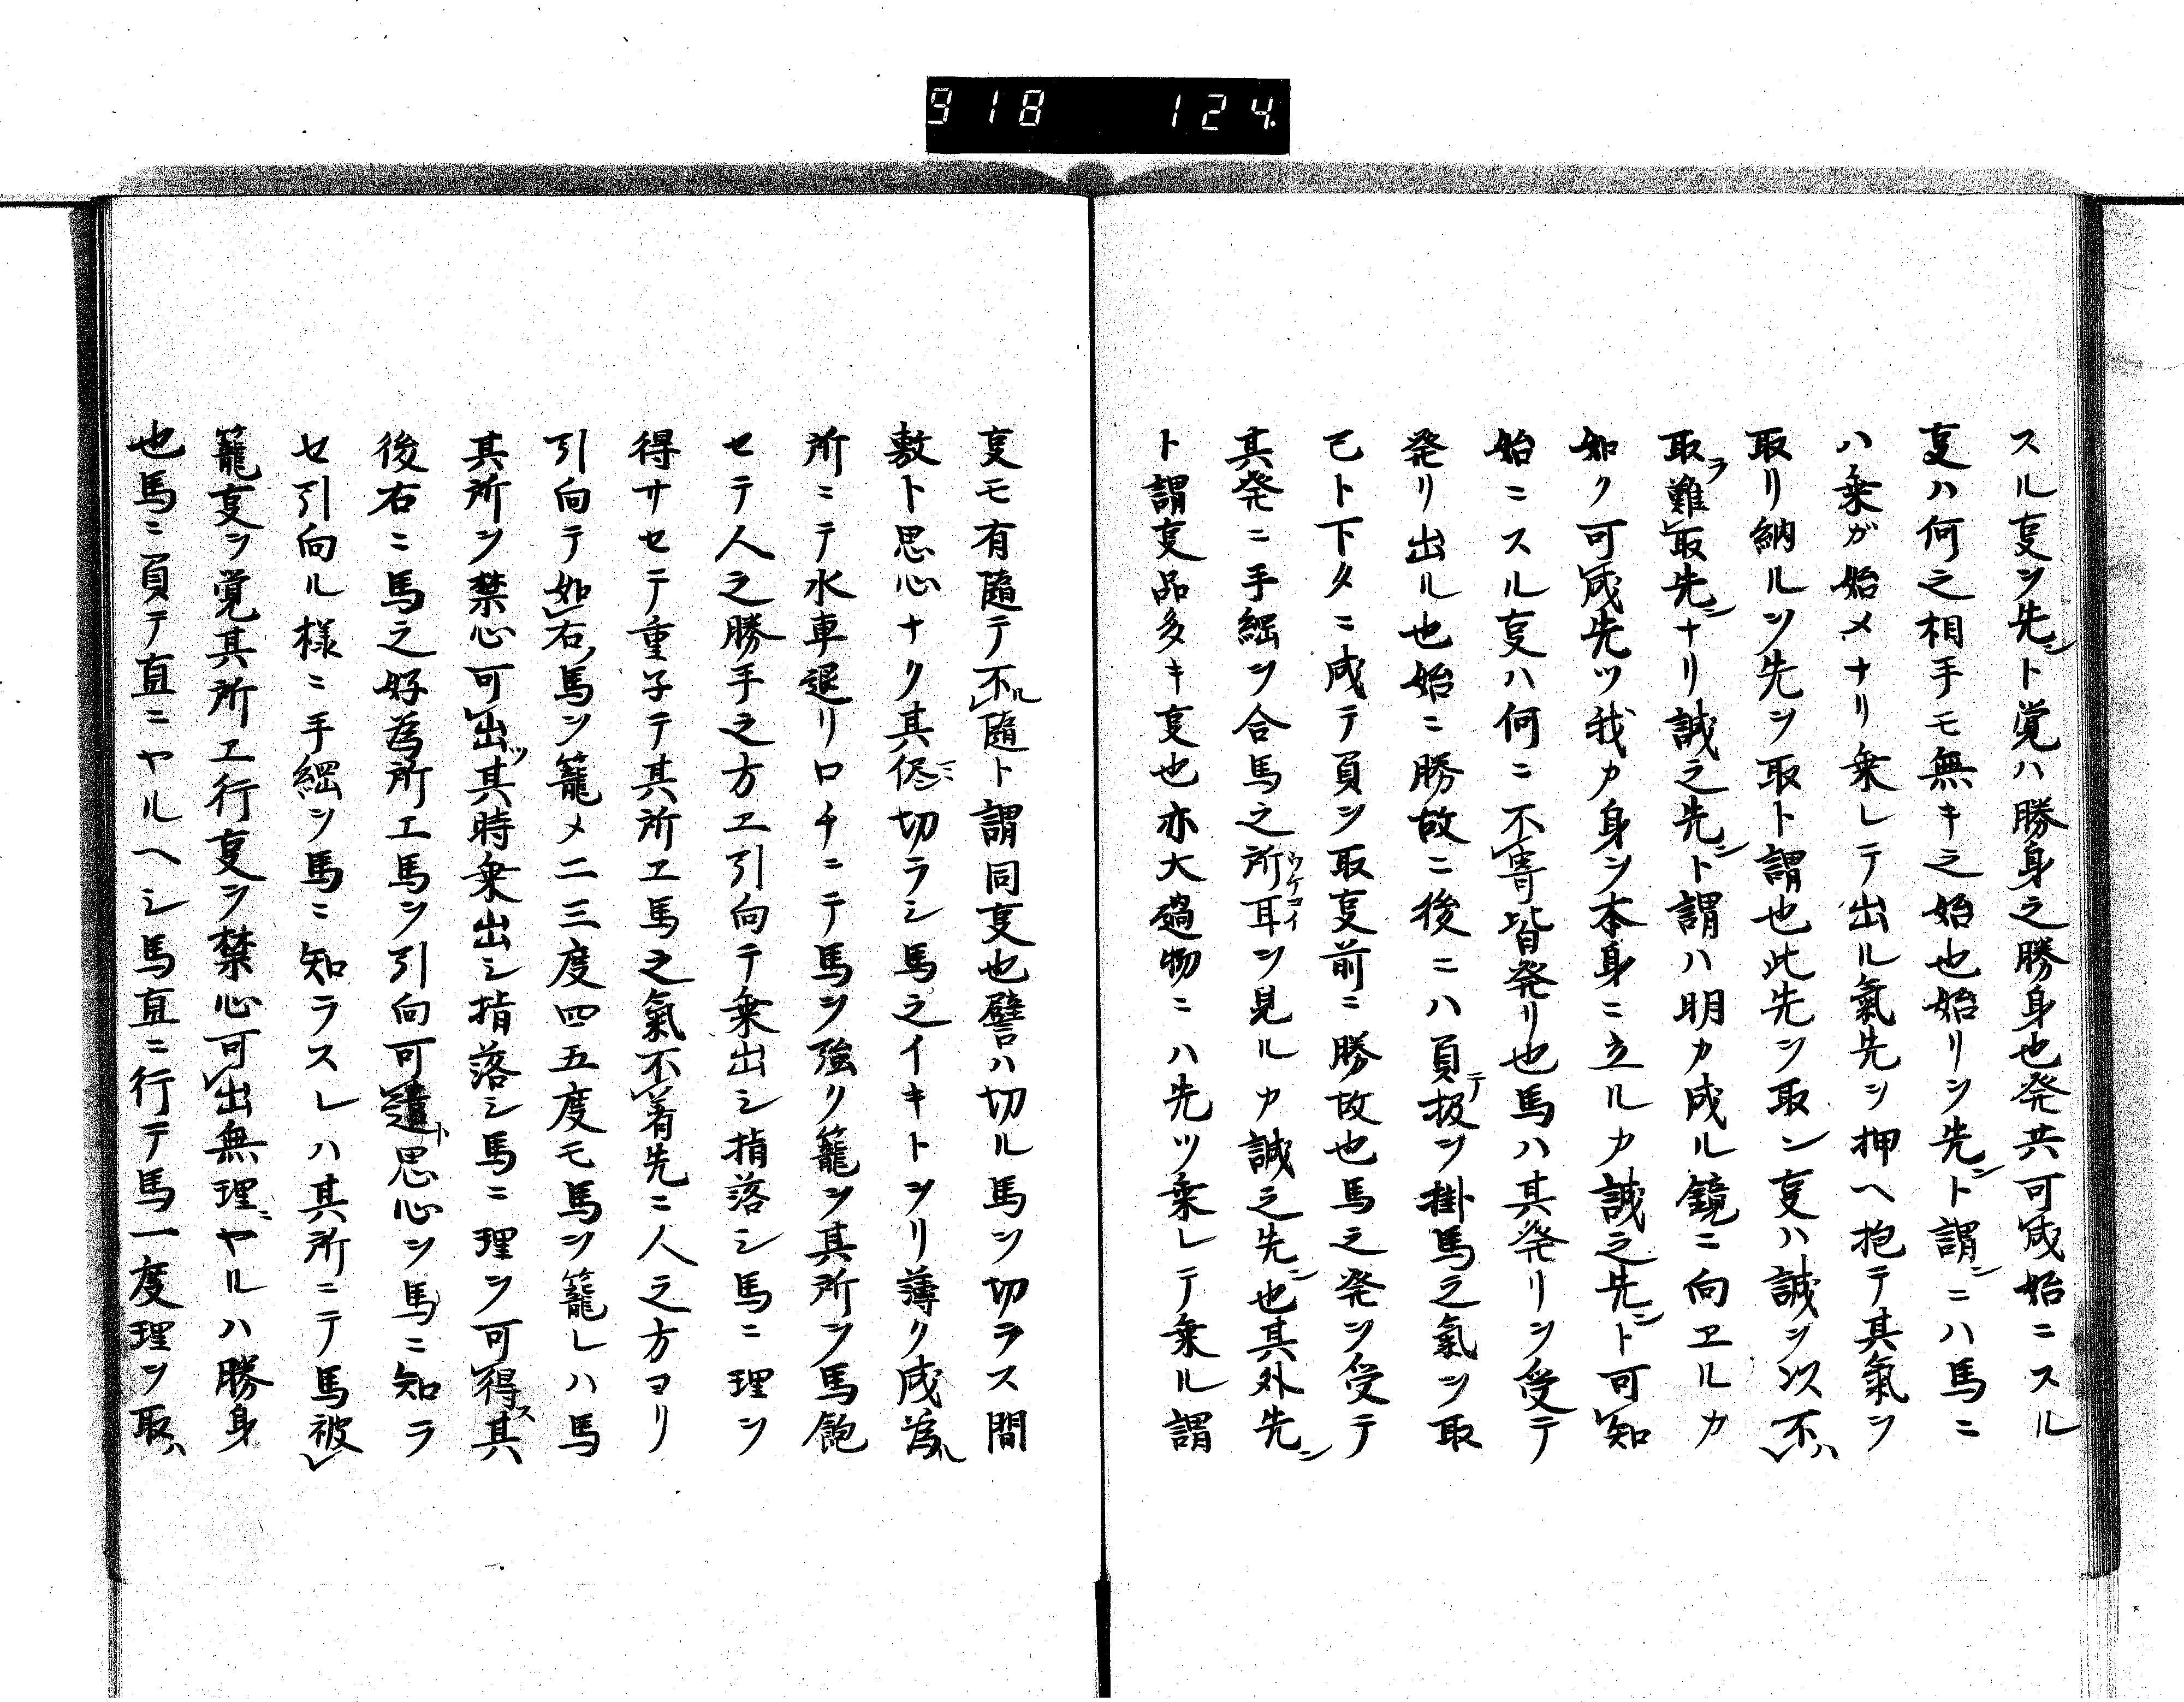 918 124
スル㕝ヲ先ント覚ハ勝身之勝身也発共可成始ニスル
㕝ハ何之相手モ無キ之始也始リヲ先ント謂ンニハ馬ニ
ハ乗ガ始メナリ乗レテ出ル氣先ヲ押ヘ抱テ其氣ヲ
取リ納ルヲ先ヲ取ト謂也此先ヲ取ン㕝ハ誠ヲ以不ハ
取ラ難取先ンナリ誠之先ント謂ハ明カ成ル鏡ニ向ヱルカ
如ク可成先ツ我カ身ヲ本身ニ立ルカ誠之先ント可知
始ニスル㕝ハ何ニ不寄皆発リ也馬ハ其発リヲ受テ
発リ出ル也始ニ勝故ニ後ニハ負テ扱ヲ掛馬之氣ヲ取
己ト下タニ成テ負ヲ取㕝前ニ勝故也馬之発ヲ受テ
其発ニ手綱ヲ合馬之所耳ウケコイヲ見ルカ誠之先ン也其外先ン
ト謂㕝品多キ㕝也亦大過物ニハ先ツ乗レテ乗ル謂
㕝モ有随テ不ル随ト謂同㕝也譬ハ切ル馬ヲ切ラス間
敷ト思心ナク其侭ニ切ラシ馬之イキトヲリ薄ク成為ル
所ニテ水車返リロチニテ馬ヲ強ク籠ヲ其所ヲ馬飽
セテ人之勝手之方ヱ引向テ乗出シ指落シ馬ニ理ヲ
得サセテ重子テ其所ヱ馬之氣不着先ニ人之方ヨリ
引向テ如右馬ヲ籠メ二三度四五度モ馬ヲ籠レハ馬
其所ヲ禁心可出ツ其時乗出シ指落シ馬ニ理ヲ可得ス其
後右ニ馬之好為所ヱ馬ヲ引向可遣ト思心ヲ馬ニ知ラ
セ引向ル様ニ手綱ヲ馬ニ知ラスレハ其所ニテ馬被
籠㕝ヲ覚其所ヱ行㕝ヲ禁心可出無理ニヤルハ勝身
也馬ニ負テ直ニヤルヘシ馬直ニ行テ馬一度理ヲ取ハ